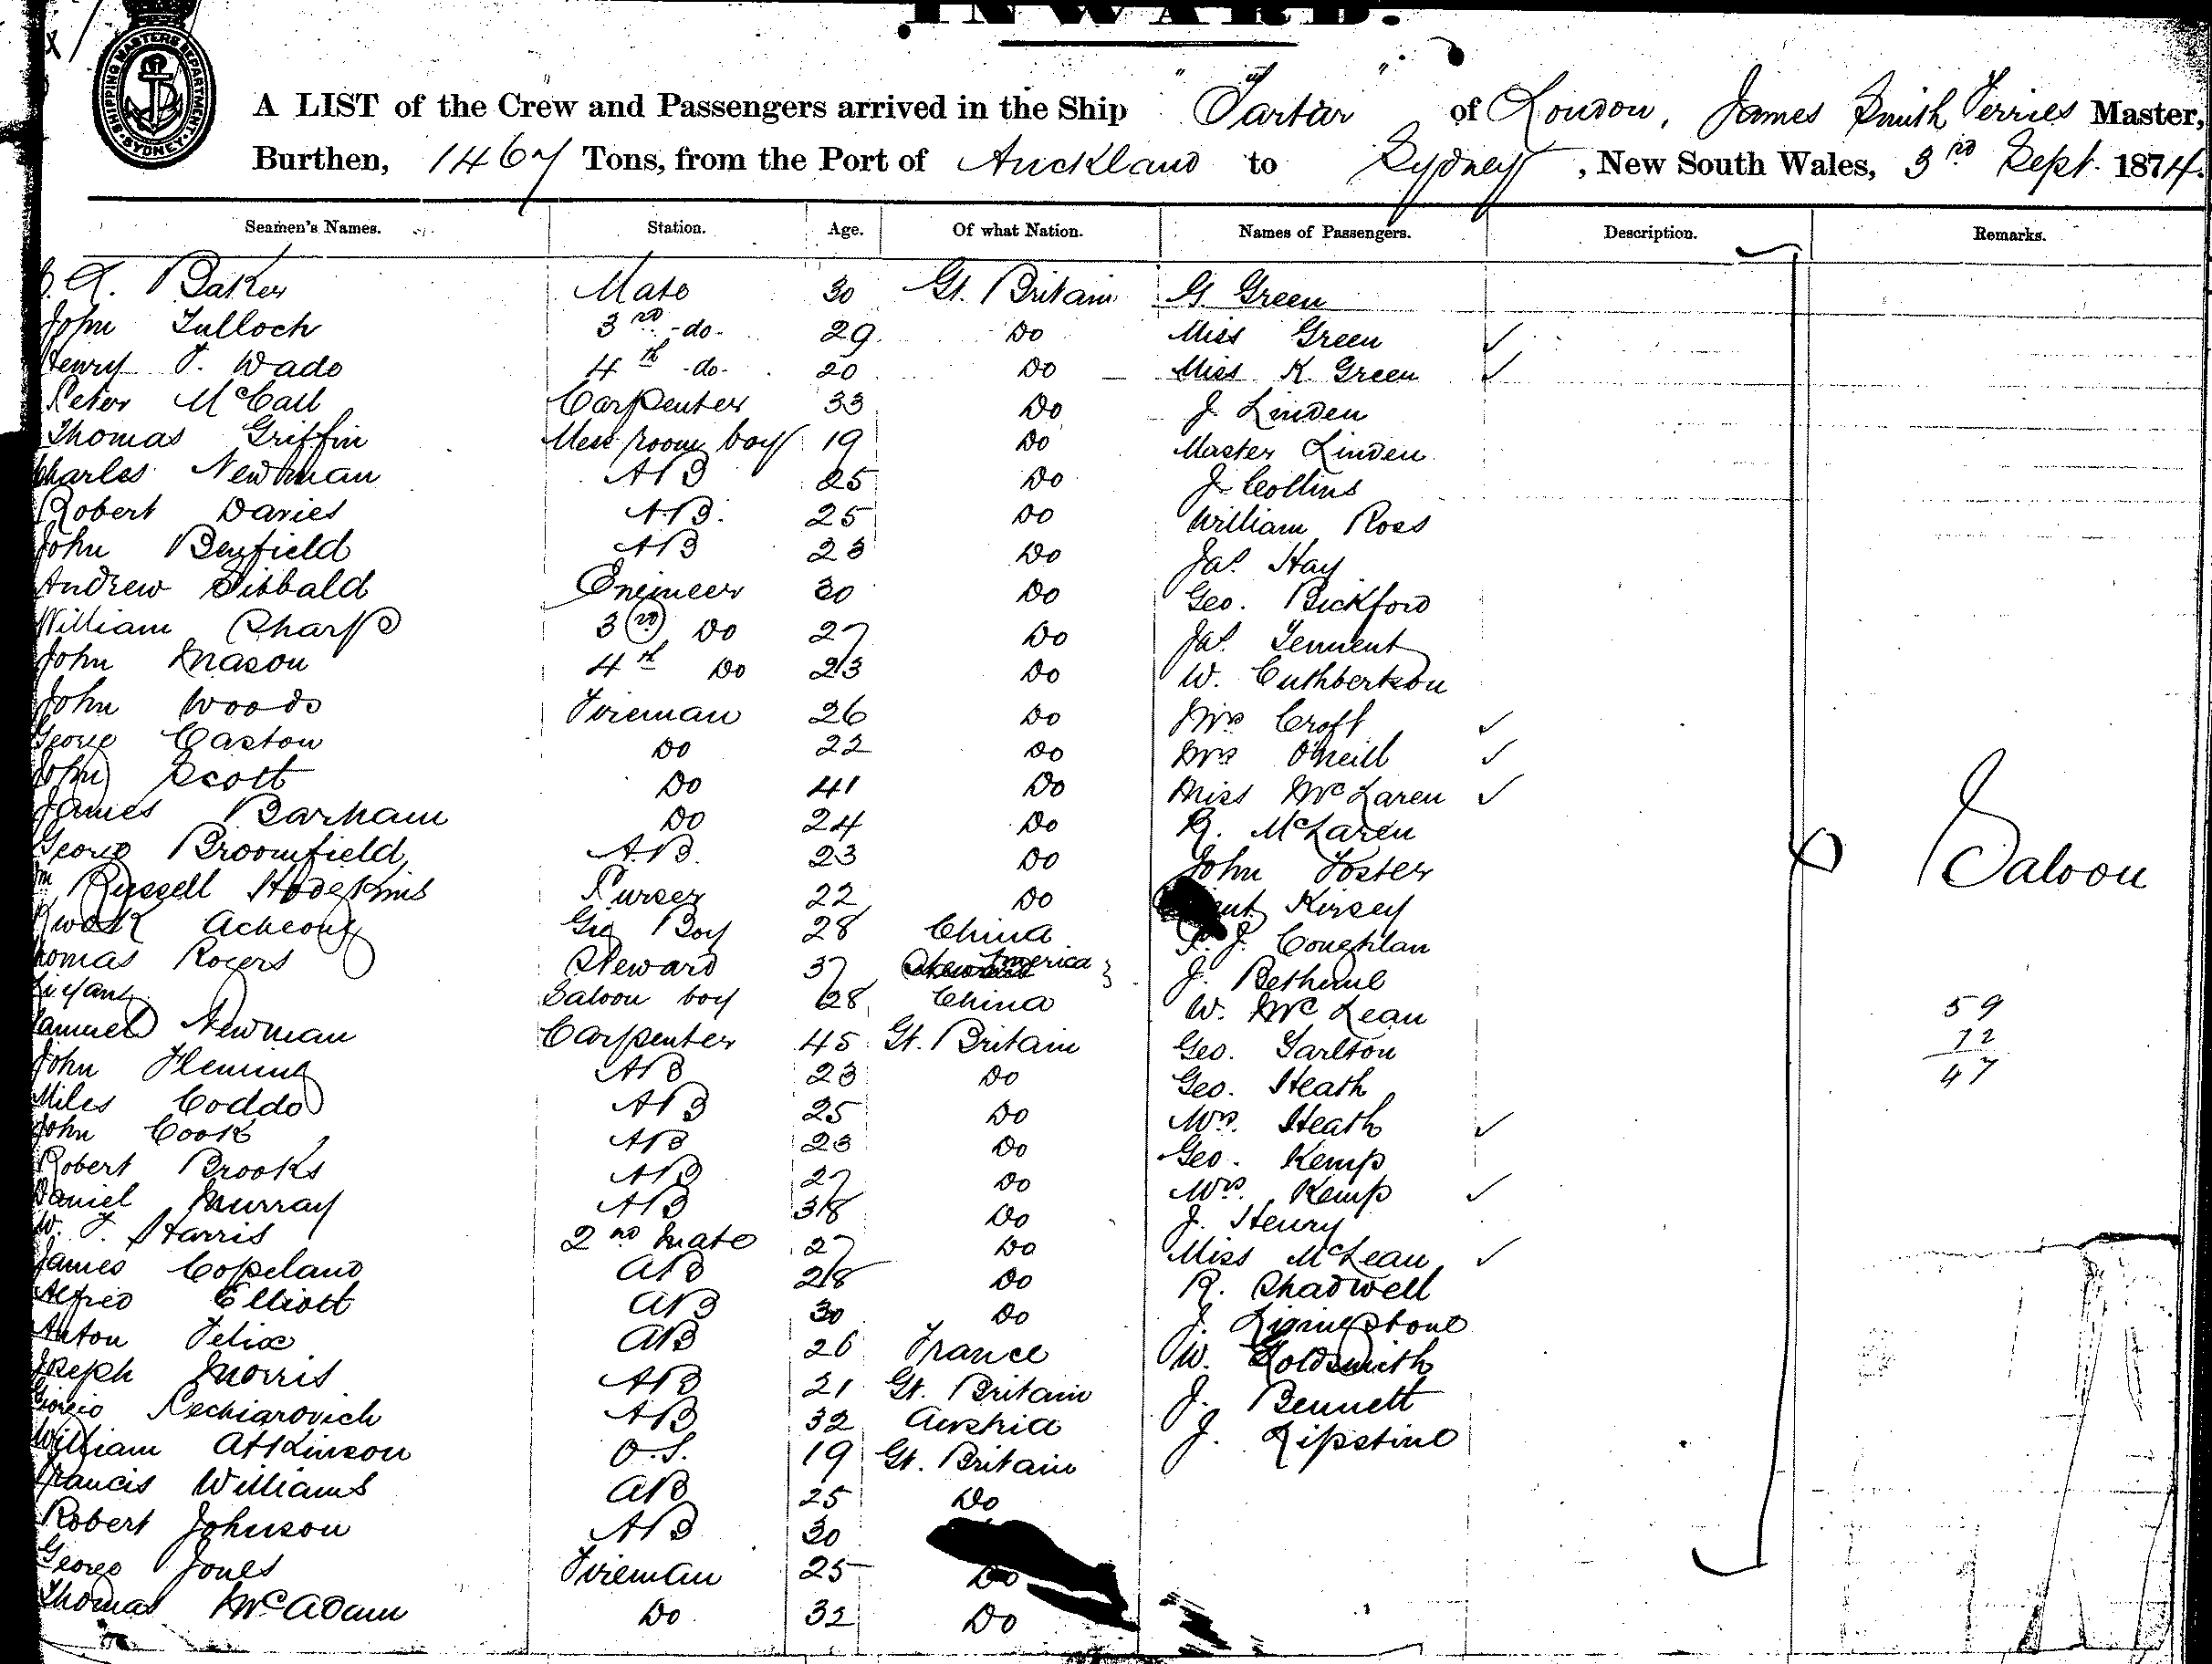 INWARD.
SHIPPING MASTERS DEPARTMENT SYDNEY
A LIST of the Crew and Passengers arrived in the Ship "Tartar" of London, James Smith Ferries Master,
Burthen, 1467 Tons, from the Port of Auckland to Sydney, New South Wales, 3rd Sept. 1874.
Seamen's Names. Station. Age. Of what Nation. Names of Passengers. Description. Remarks.
A. Baker Mate 30 Gt. Britain G Green
John Tulloch 3rd -do- 29 Do Miss Green ✓
Henry T. Wade 4th -do- 20 Do Miss K Green ✓
Peter McCall Carpenter 33 Do J. Linden
Thomas Griffin Mess room boy 19 Do Master Linden
Charles Newman AB 25 Do J Collins
Robert Davies AB. 25 Do William Ross
John Benfield AB 23 Do Jas. Hay
Andrew Sibbald Engineer 30 Do Geo. Bickford
William Sharp 3rd Do 27 Do Jas. Tennent
John Mason 4th Do 23 Do W. Cuthbertson
John Woods Fireman 26 Do Mrs Croft ✓
George Caston Do 22 Do Mrs O'Neill ✓
John Scott Do 41 Do Miss McLaren ✓
James Barham Do 24 Do R. McLaren
George Broomfield A.B. 23 Do John Foster
Wm Russell Hodgkins Purser 22 Do Kirsey
Kwok Acheong Gig Boy 28 China J. Coughlan
Thomas Rogers Steward 37 America J. Bethune
Saloon boy 28 China W. McLean
Samuel Newman Carpenter 45 Gt. Britain Geo. Tarlton
John Fleming AB 23 Do Geo. Heath
Miles Coddo AB 25 Do Mrs. Heath ✓
John Cook AB 23 Do Geo. Kemp
Robert Brooks AB 27 Do Mrs. Kemp ✓
Daniel Murray AB 38 Do J. Henry
W. T. Harris 2nd Mate 27 Do Miss McLean ✓
James Copeland AB 28 Do R. Shadwell
Alfred Elliott AB 30 Do J. Livingstone
Anton Felix AB 26 France W. Goldsmith
Joseph Morris AB 21 Gt. Britain J. Bennett
Giorgio Pechiarovich AB 32 Austria J. Lipstine
William Atkinson O.S. 19 Gt. Britain
Francis Williams AB 25 Do
Robert Johnson AB 30
George Jones Fireman 25 Do
Thomas McAdam Do 32 Do
Saloon
59
12
47